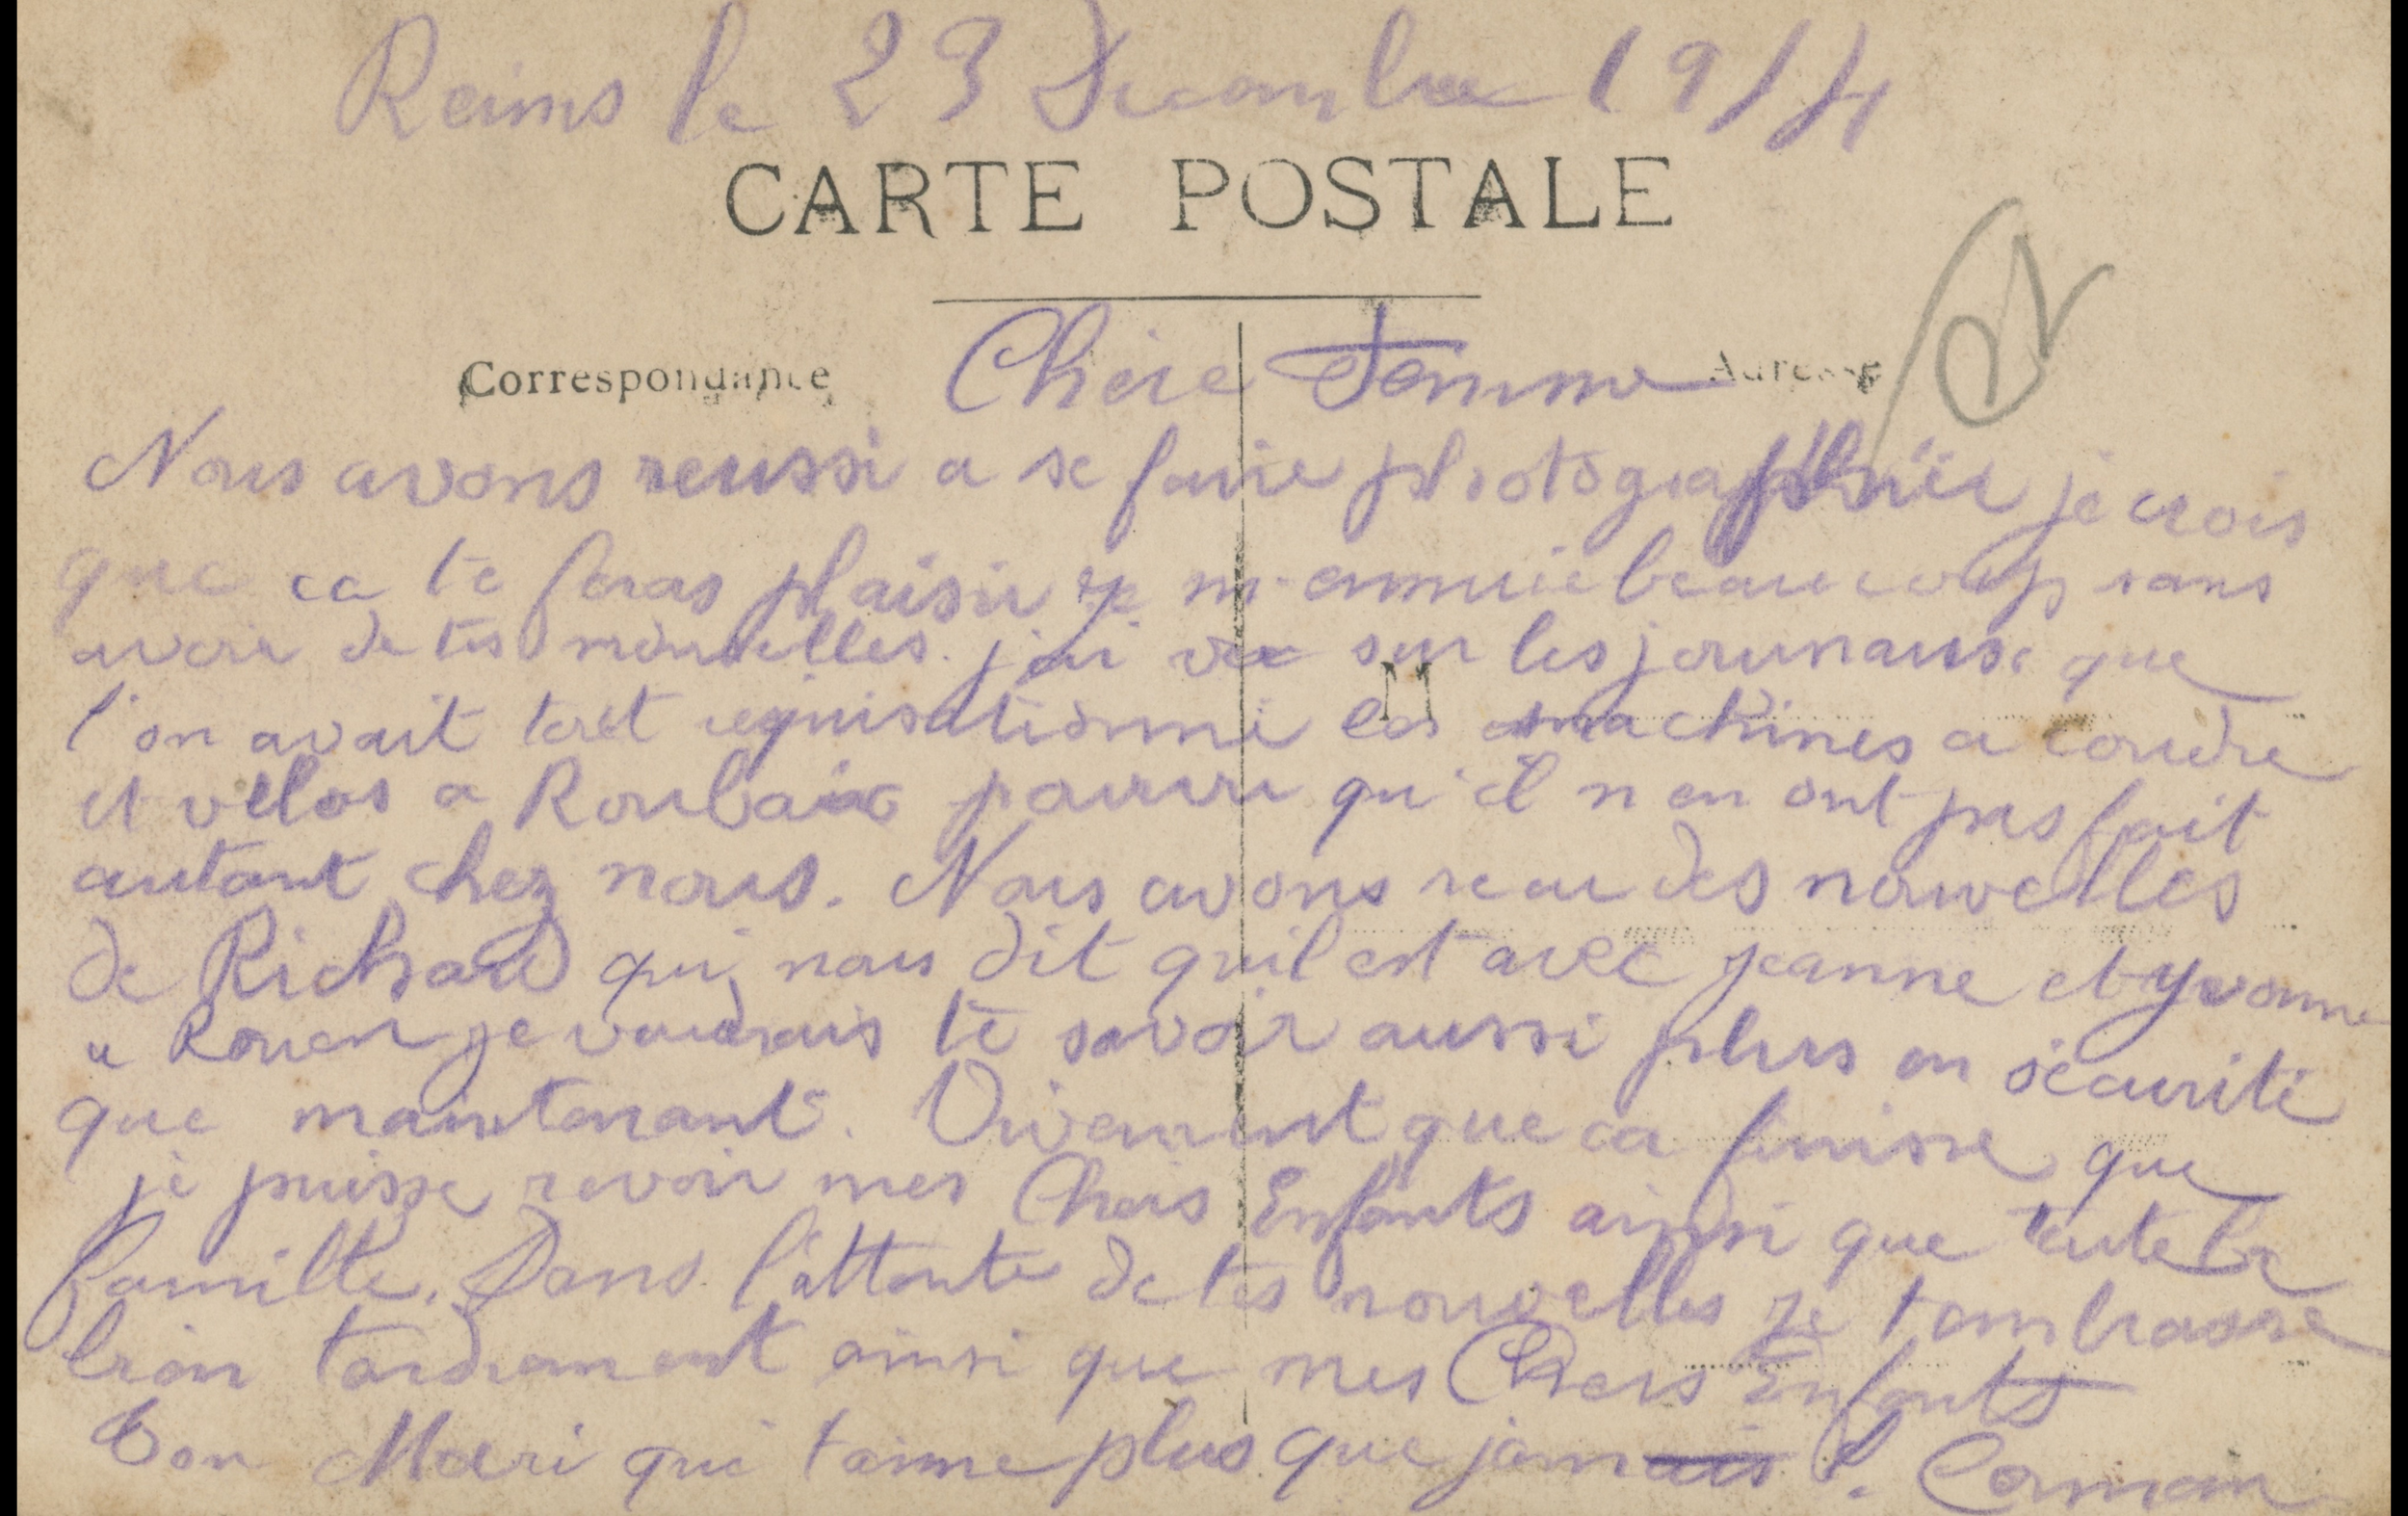 Reims le 23 Decembre 1914
CARTE POSTALE
Correspondance
Adresse
Chere Femme
Nous avons reussi a se faire photographier je crois
que ca te feras plaisir je m'ennuie beaucoup sans
avoir de tes nouvelles. j'ai vu sur les journaux que
l'on avait tout requisitionné les machines a coudre
et vélos a Roubaix pourvu qu'il n en ont pas fait
autant chez nous. Nous avons recu des nouvelles
de Richard qui nous dit qu'il est avec jeanne et yvonne
a Rouen je voudrais te savoir aussi plus en sécurité
que maintenant. Vivement que ca finisse que
je puisse revoir mes Chers Enfants ainsi que toute la
famille. Dans l'attente de tes nouvelles je t embrasse
bien tendrement ainsi que mes Chers Enfants
Ton Mari qui t aime plus que jamais